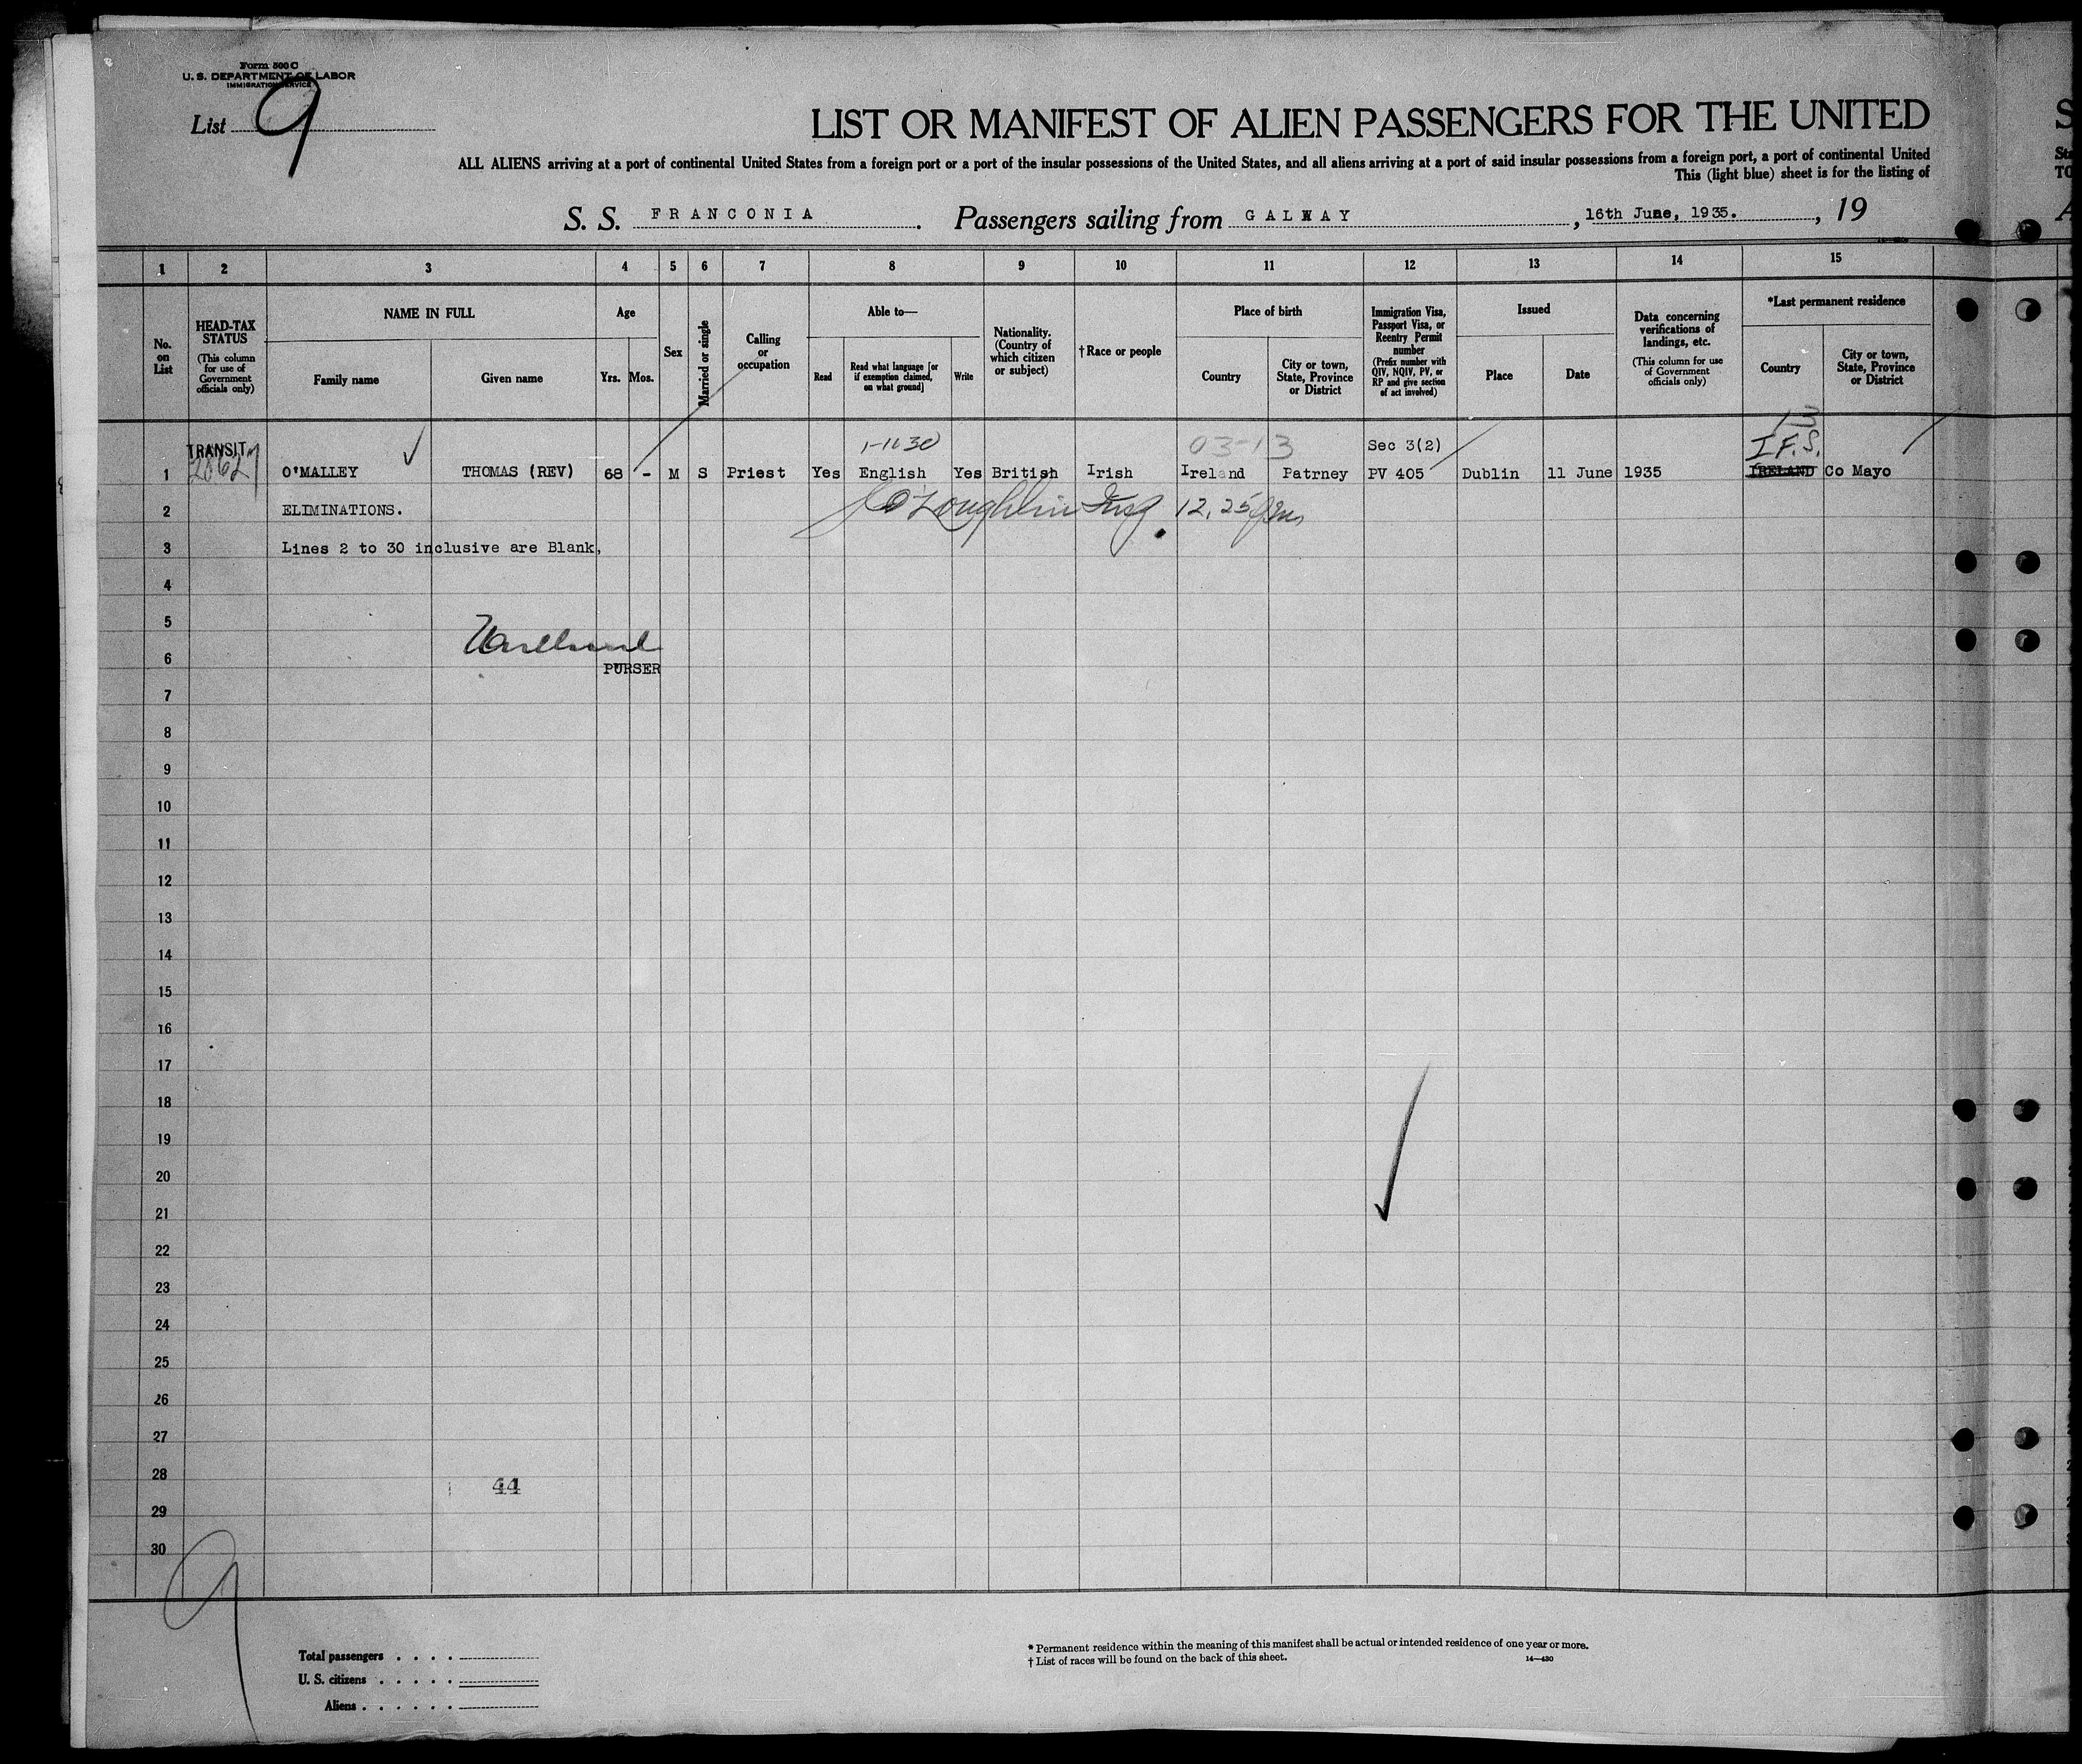 Form 500 C
U. S. DEPARTMENT OF LABOR
IMMIGRATION SERVICE
List 9
LIST OR MANIFEST OF ALIEN PASSENGERS FOR THE UNITED
ALL ALIENS arriving at a port of continental United States from a foreign port or a port of the insular possessions of the United States, and all aliens arriving at a port of said insular possessions from a foreign port, a port of continental United
This (light blue) sheet is for the listing of
S. S. FRANCONIA. Passengers sailing from GALWAY, 16th June, 1935., 19
1 2 3 4 5 6 7 8 9 10 11 12 13 14 15
No. on List
HEAD-TAX STATUS
(This column for use of Government officials only)
NAME IN FULL
Family name Given name
Age
Yrs. Mos.
Sex
Married or single
Calling or occupation
Able to—
Read
Read what language [or if exemption claimed, on what ground]
Write
Nationality. (Country of which citizen or subject)
†Race or people
Place of birth
Country
City or town, State, Province or District
Immigration Visa, Passport Visa, or Reentry Permit number
(Prefix number with QIV, NQIV, PV, or RP and give section of act involved)
Issued
Place Date
Data concerning verifications of landings, etc.
(This column for use of Government officials only)
*Last permanent residence
Country
City or town, State, Province or District
TRANSIT 1-1630 03-13 Sec 3(2) I.F.S.
1 O'MALLEY THOMAS (REV) 68 - M S Priest Yes English Yes British Irish Ireland Patrney PV 405 Dublin 11 June 1935 IRELAND Co Mayo
2 ELIMINATIONS. O'Loughlin Insp. 12,25
3 Lines 2 to 30 inclusive are Blank,
4
5
6
PURSER
7
8
9
10
11
12
13
14
15
16
17
18
19
20
21
22
23
24
25
26
27
28 44
29
30
9
Total passengers . . . .
U. S. citizens . . . . .
Aliens . . . . . .
* Permanent residence within the meaning of this manifest shall be actual or intended residence of one year or more.
† List of races will be found on the back of this sheet. 14—430